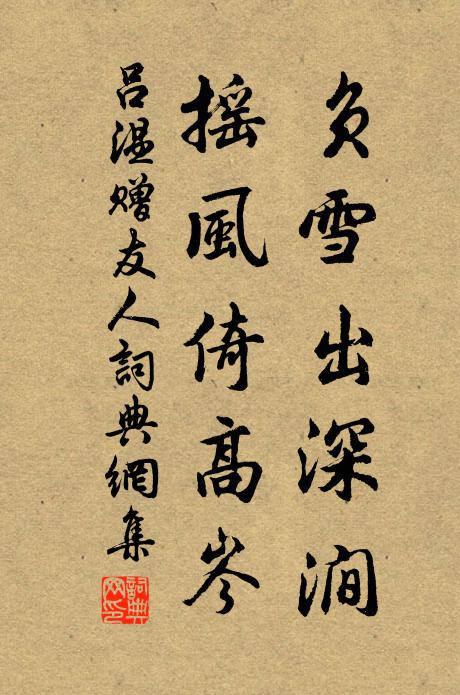 負雪出深澗
搖風倚高岑
呂溫贈友人詞典網集
詞典網印